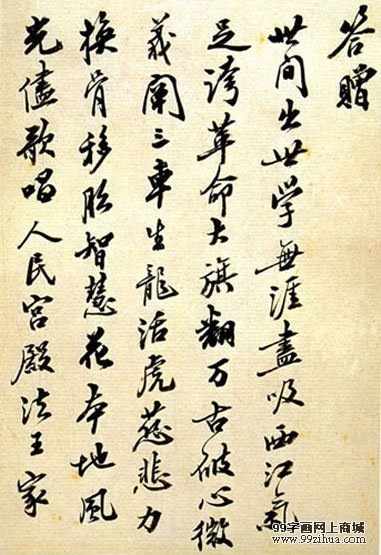 答贈
世间出世学無涯盡吸西江氣
足誇革命大旗翻万古破心微
義闡三車生龍活虎慈悲力
換骨移胎智慧花本地風
光儘歌唱人民宫殿法王家
99字画网上商城
www.99zihua.com